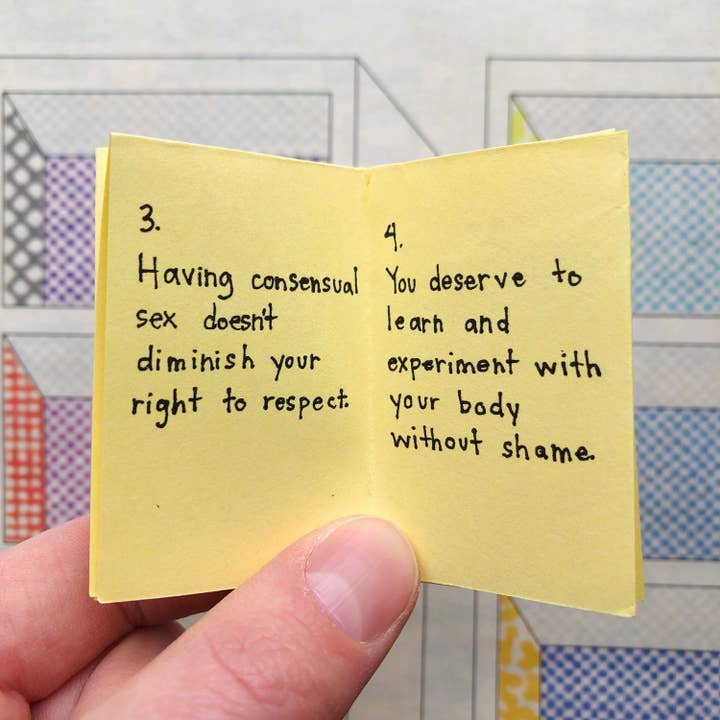 3.
Having consensual
sex doesn't
diminish your
right to respect.
4.
You deserve to
learn and
experiment with
your body
without shame.